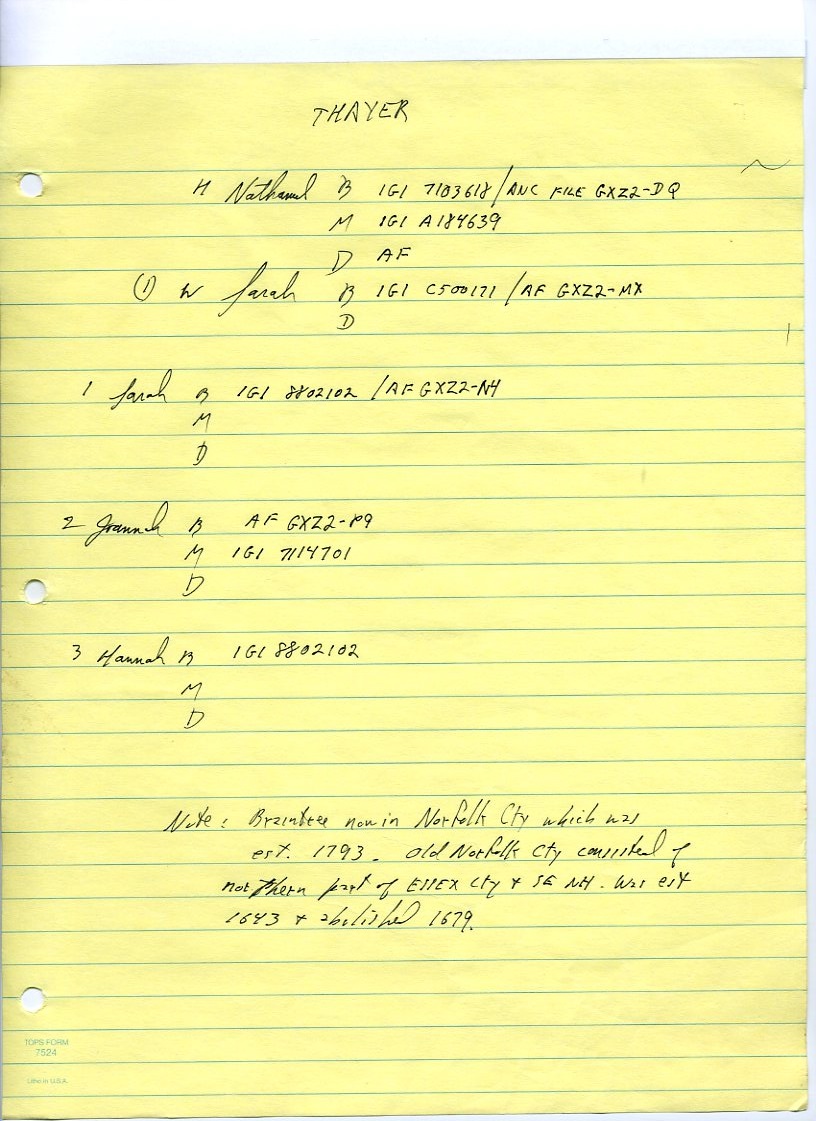 THAYER
H Nathaniel B IGI 7103618/ANC FILE GXZ2-DQ
M IGI A184639
D AF
① W Sarah B IGI C500171 /AF GXZ2-MX
D
1 Sarah B IGI 8802102 /AF GXZ2-N4
M
D
2 Joannah B AF GXZ2-P9
M IGI 7114701
D
3 Hannah B IGI 8802102
M
D
Note: Braintree now in Norfolk Cty which was
est. 1793. Old Norfolk Cty consisted of
northern part of ESSEX Cty + SE NH. Was est
1643 + abolished 1679.
TOPS FORM
7524
Litho in U.S.A.